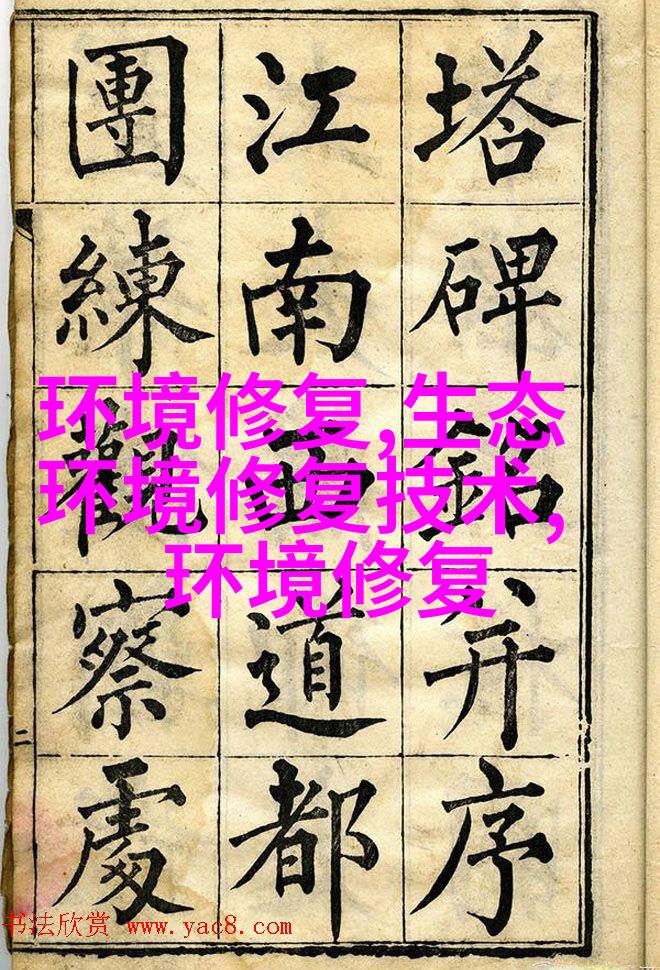 塔碑銘并序
江南西道都
團練觀察處
二
环境修复,生态
环境修复技术,
环境修复
书法欣赏 www.yac8.com